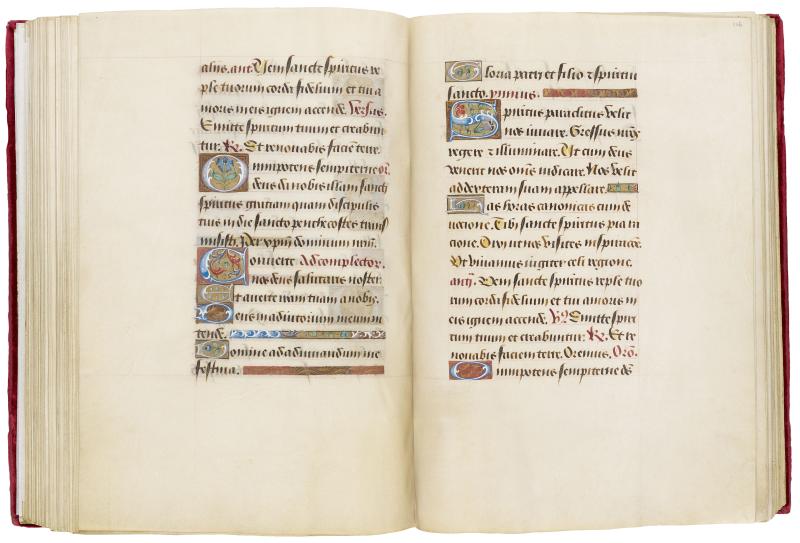 alius. ant. Veni sancte spiritus re
ple tuorum corda fidelium et tui a
moris in eis ignem accende. Versus.
Emitte spiritum tuum et creabun
tur. R. Et renovabis faciē terre.
Omnipotens sempiterne or.
deus da nobis illam sancti
spiritus gratiam quam discipulis
tuis in die sancto penthecostes trans
misisti. Per xpm dominum nrm.
Converte Ad complector.
nos deus salutaris noster.
Et averte iram tuam a nobis.
Deus in adiutorium meum in
tende.
Domine ad adiuvandum me
festina.
Gloria patri et filio et spiritui
sancto. ymnus.
Spiritus paraclitus velit
nos iuvare. Gressus nr̄os
regere et illuminare. Ut cum deus
venerit nos om̄s iudicare. Nos velit
ad dexteram suam appellare.
Has horas canonicas cum de
vocione. Tibi sancte spiritus pia ra
cione. Dixi ut nos visites inspiracōe.
Et vivamus iugiter celi regione.
anty. Veni sancte spiritus reple tuo
rum corda fidelium et tui amoris in
eis ignem accende. Vs Emitte spiri
tum tuum et creabuntur. R. Et re
novabis faciem terre. Oremus. Oro.
Omnipotens sempiterne ds